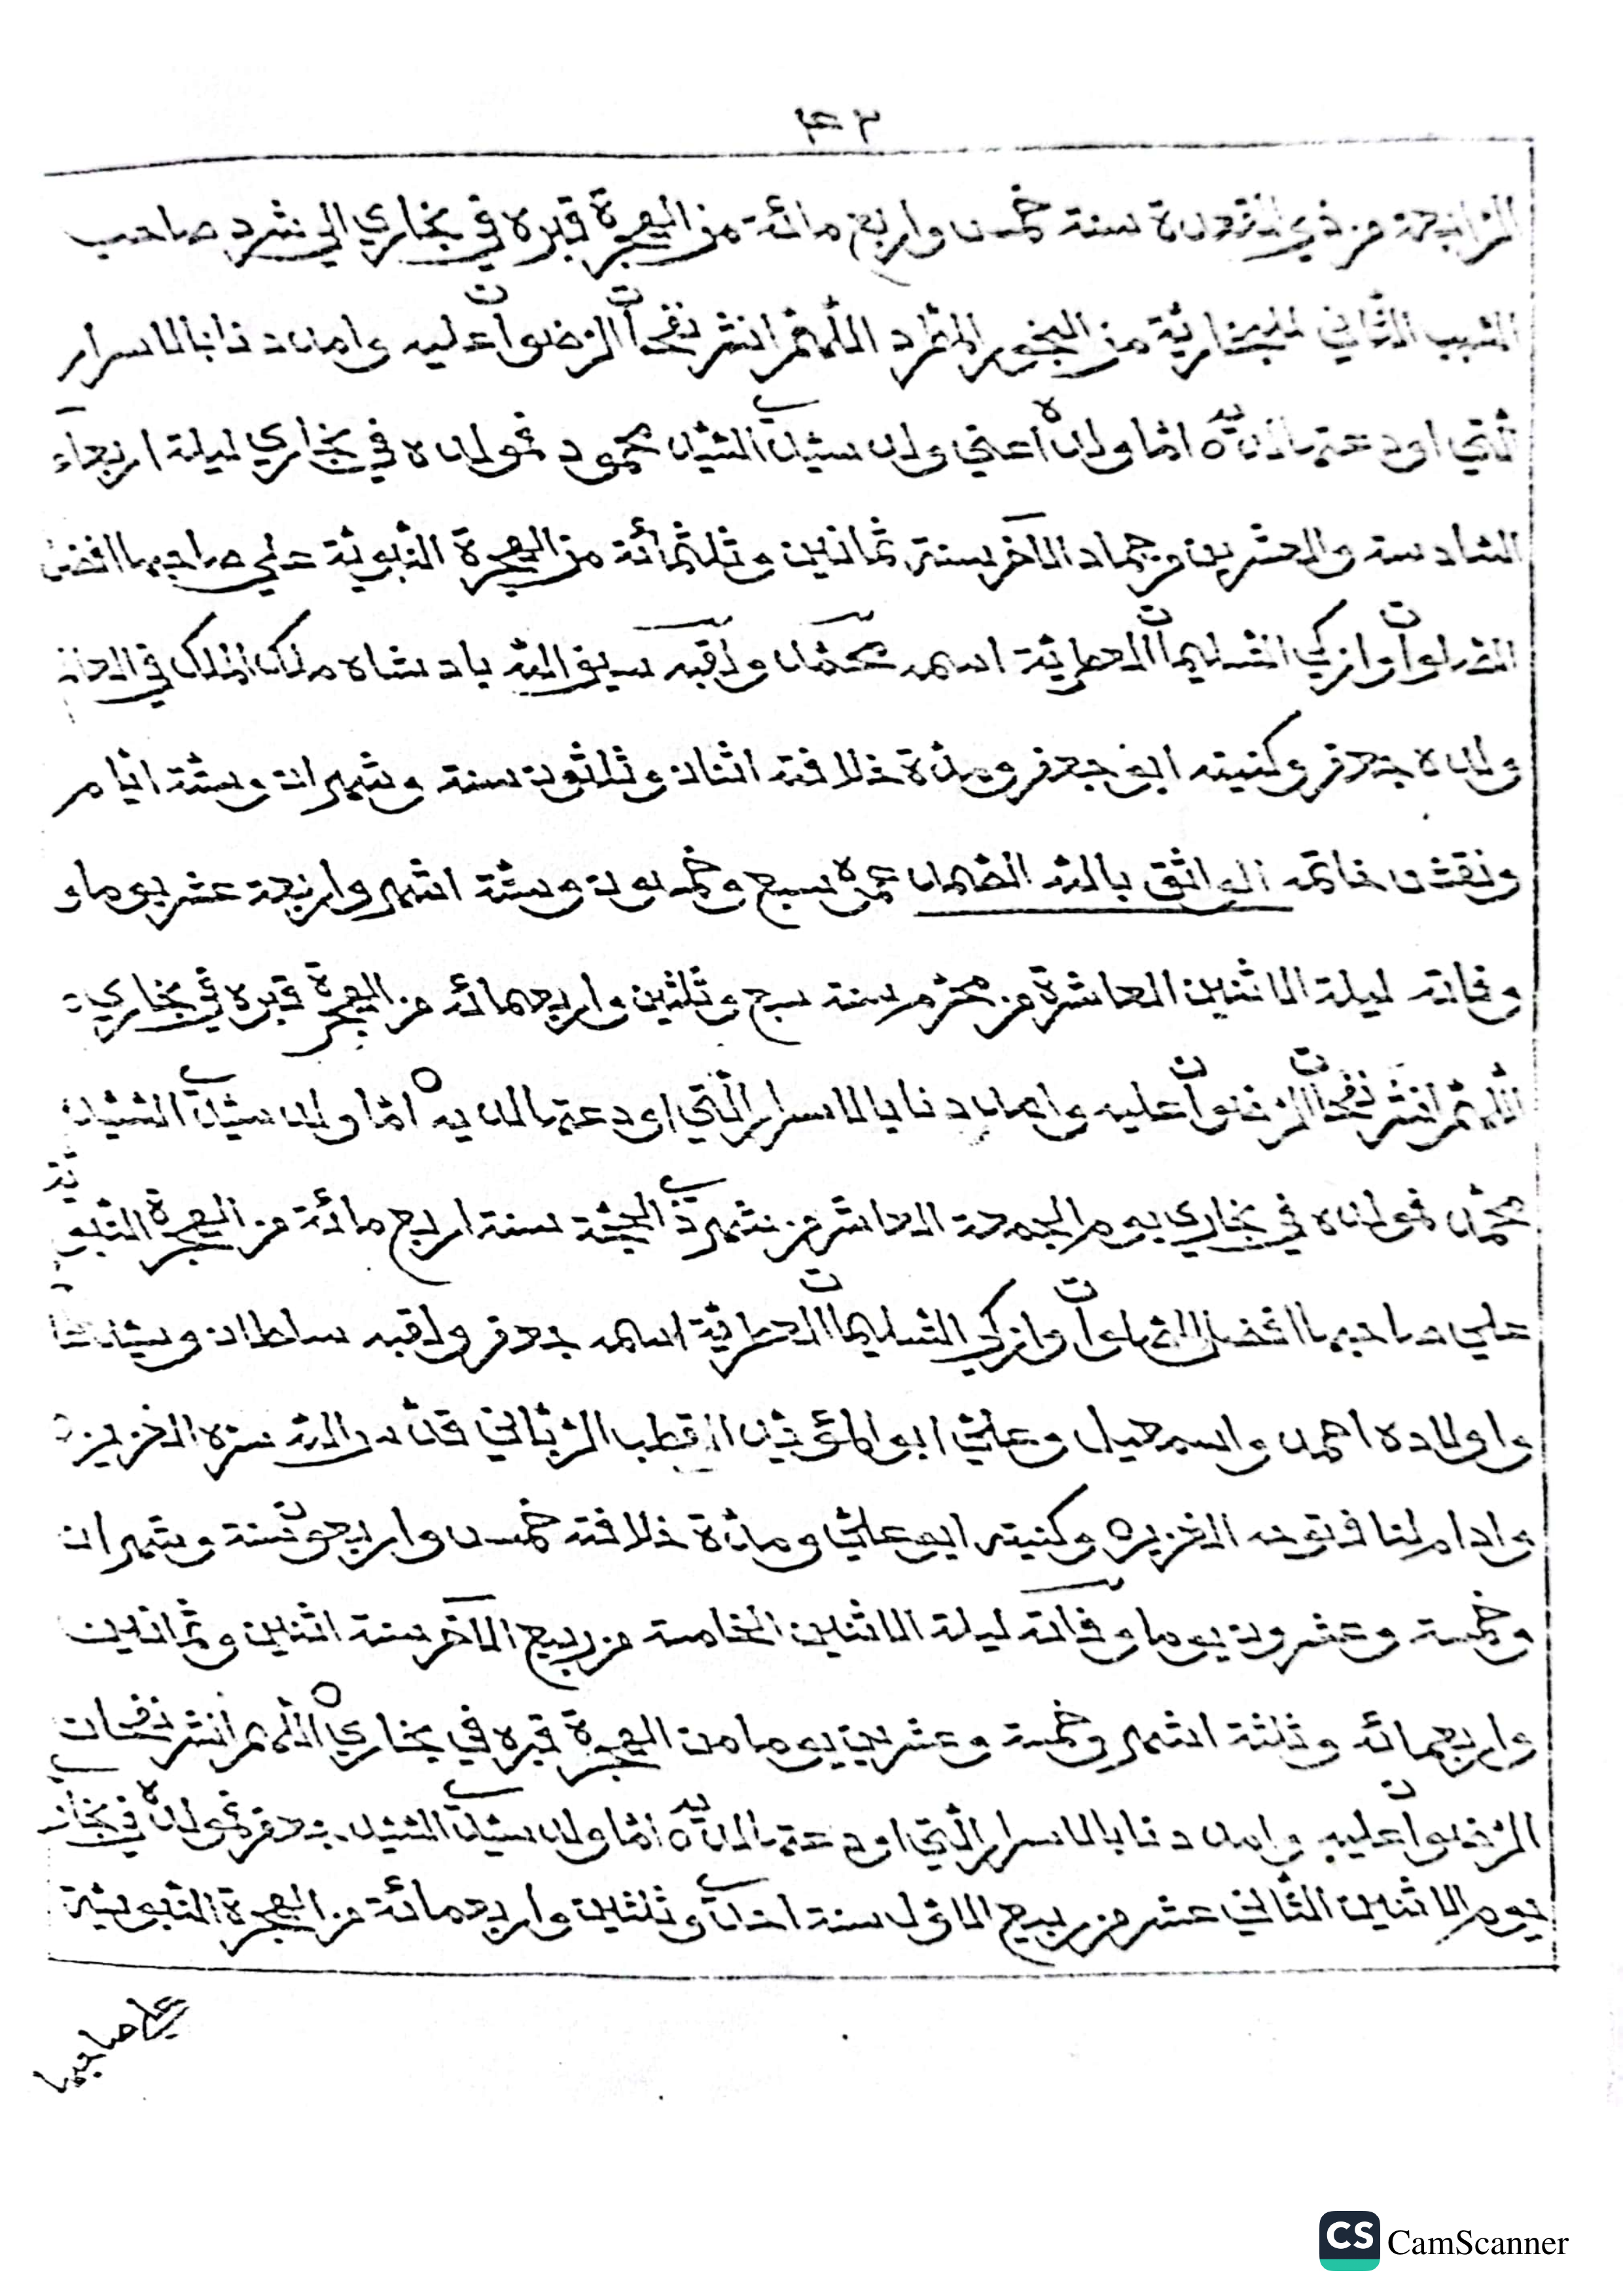 ٤٣
الرابعة من ذي القعدة سنة خمس واربع مائة من الهجرة قبره في بخاري الي شرد صاحب
الثاني البخارية من البخور المطرد اللهم انشر نفحات الرضوان عليه وامددنا بالاسرار
التي اودعتها لديه اما ولده اعني ولد سيدي السيد محمود فمولده في بخاري ليلة اربعاء
السادسة والعشرين من جماد الآخر سنة ثمانين وثلثمائة من الهجرة النبوية علي صاحبها افضل
الصلوات وازكي التسليمات العطرية اسمه محمد ولقبه سيف الله بادشاه ملك الملك في
ولده جعفر وكنيته ابو جعفر ومدة خلافته اثنان وثلثون سنة وشهران وستة ايام
ونقش خاتمه الواثق بالله الصمد عمره سبع وخمسون وستة اشهر واربعة عشر يوما و
وفاته ليلة الاثنين العاشرة من محرم سنة سبع وثلثين واربعمائه من الهجرة قبره في بخاري
اللهم انشر نفحات الرضوان عليه وامددنا بالاسرار التي اودعتها لديه اما ولد سيدي السيد
محمد فمولده في بخاري يوم الجمعة العاشر من شهر ذي الحجة سنة اربع مائة من الهجرة النبوية
علي صاحبها افضل الصلوات وازكي التسليمات العطرية اسمه جعفر ولقبه سلطان
واولاده احمد واسمعيل وعلي ابو المؤيد القطب الرباني قدس الله سره العزيز
وادام لنا فتوحه الغزيره وكنيته ابو علي ومدة خلافته خمس واربعون سنة وشهران
وخمسة وعشرون يوما وفاته ليلة الاثنين الخامسة من ربيع الآخر سنة اثنين وثمانين
واربعمائه وثلثة اشهر وخمسة وعشرين يوما من الهجرة قبره في بخاري اللهم انشر نفحات
الرضوان عليه وامددنا بالاسرار التي اودعتها لديه اما ولد سيدي السيد جعفر فمولده في بخاري
يوم الاثنين الثاني عشر من ربيع الاول سنة احدي وثلثين واربعمائة من الهجرة النبوية
علي صاحبها
CS CamScanner